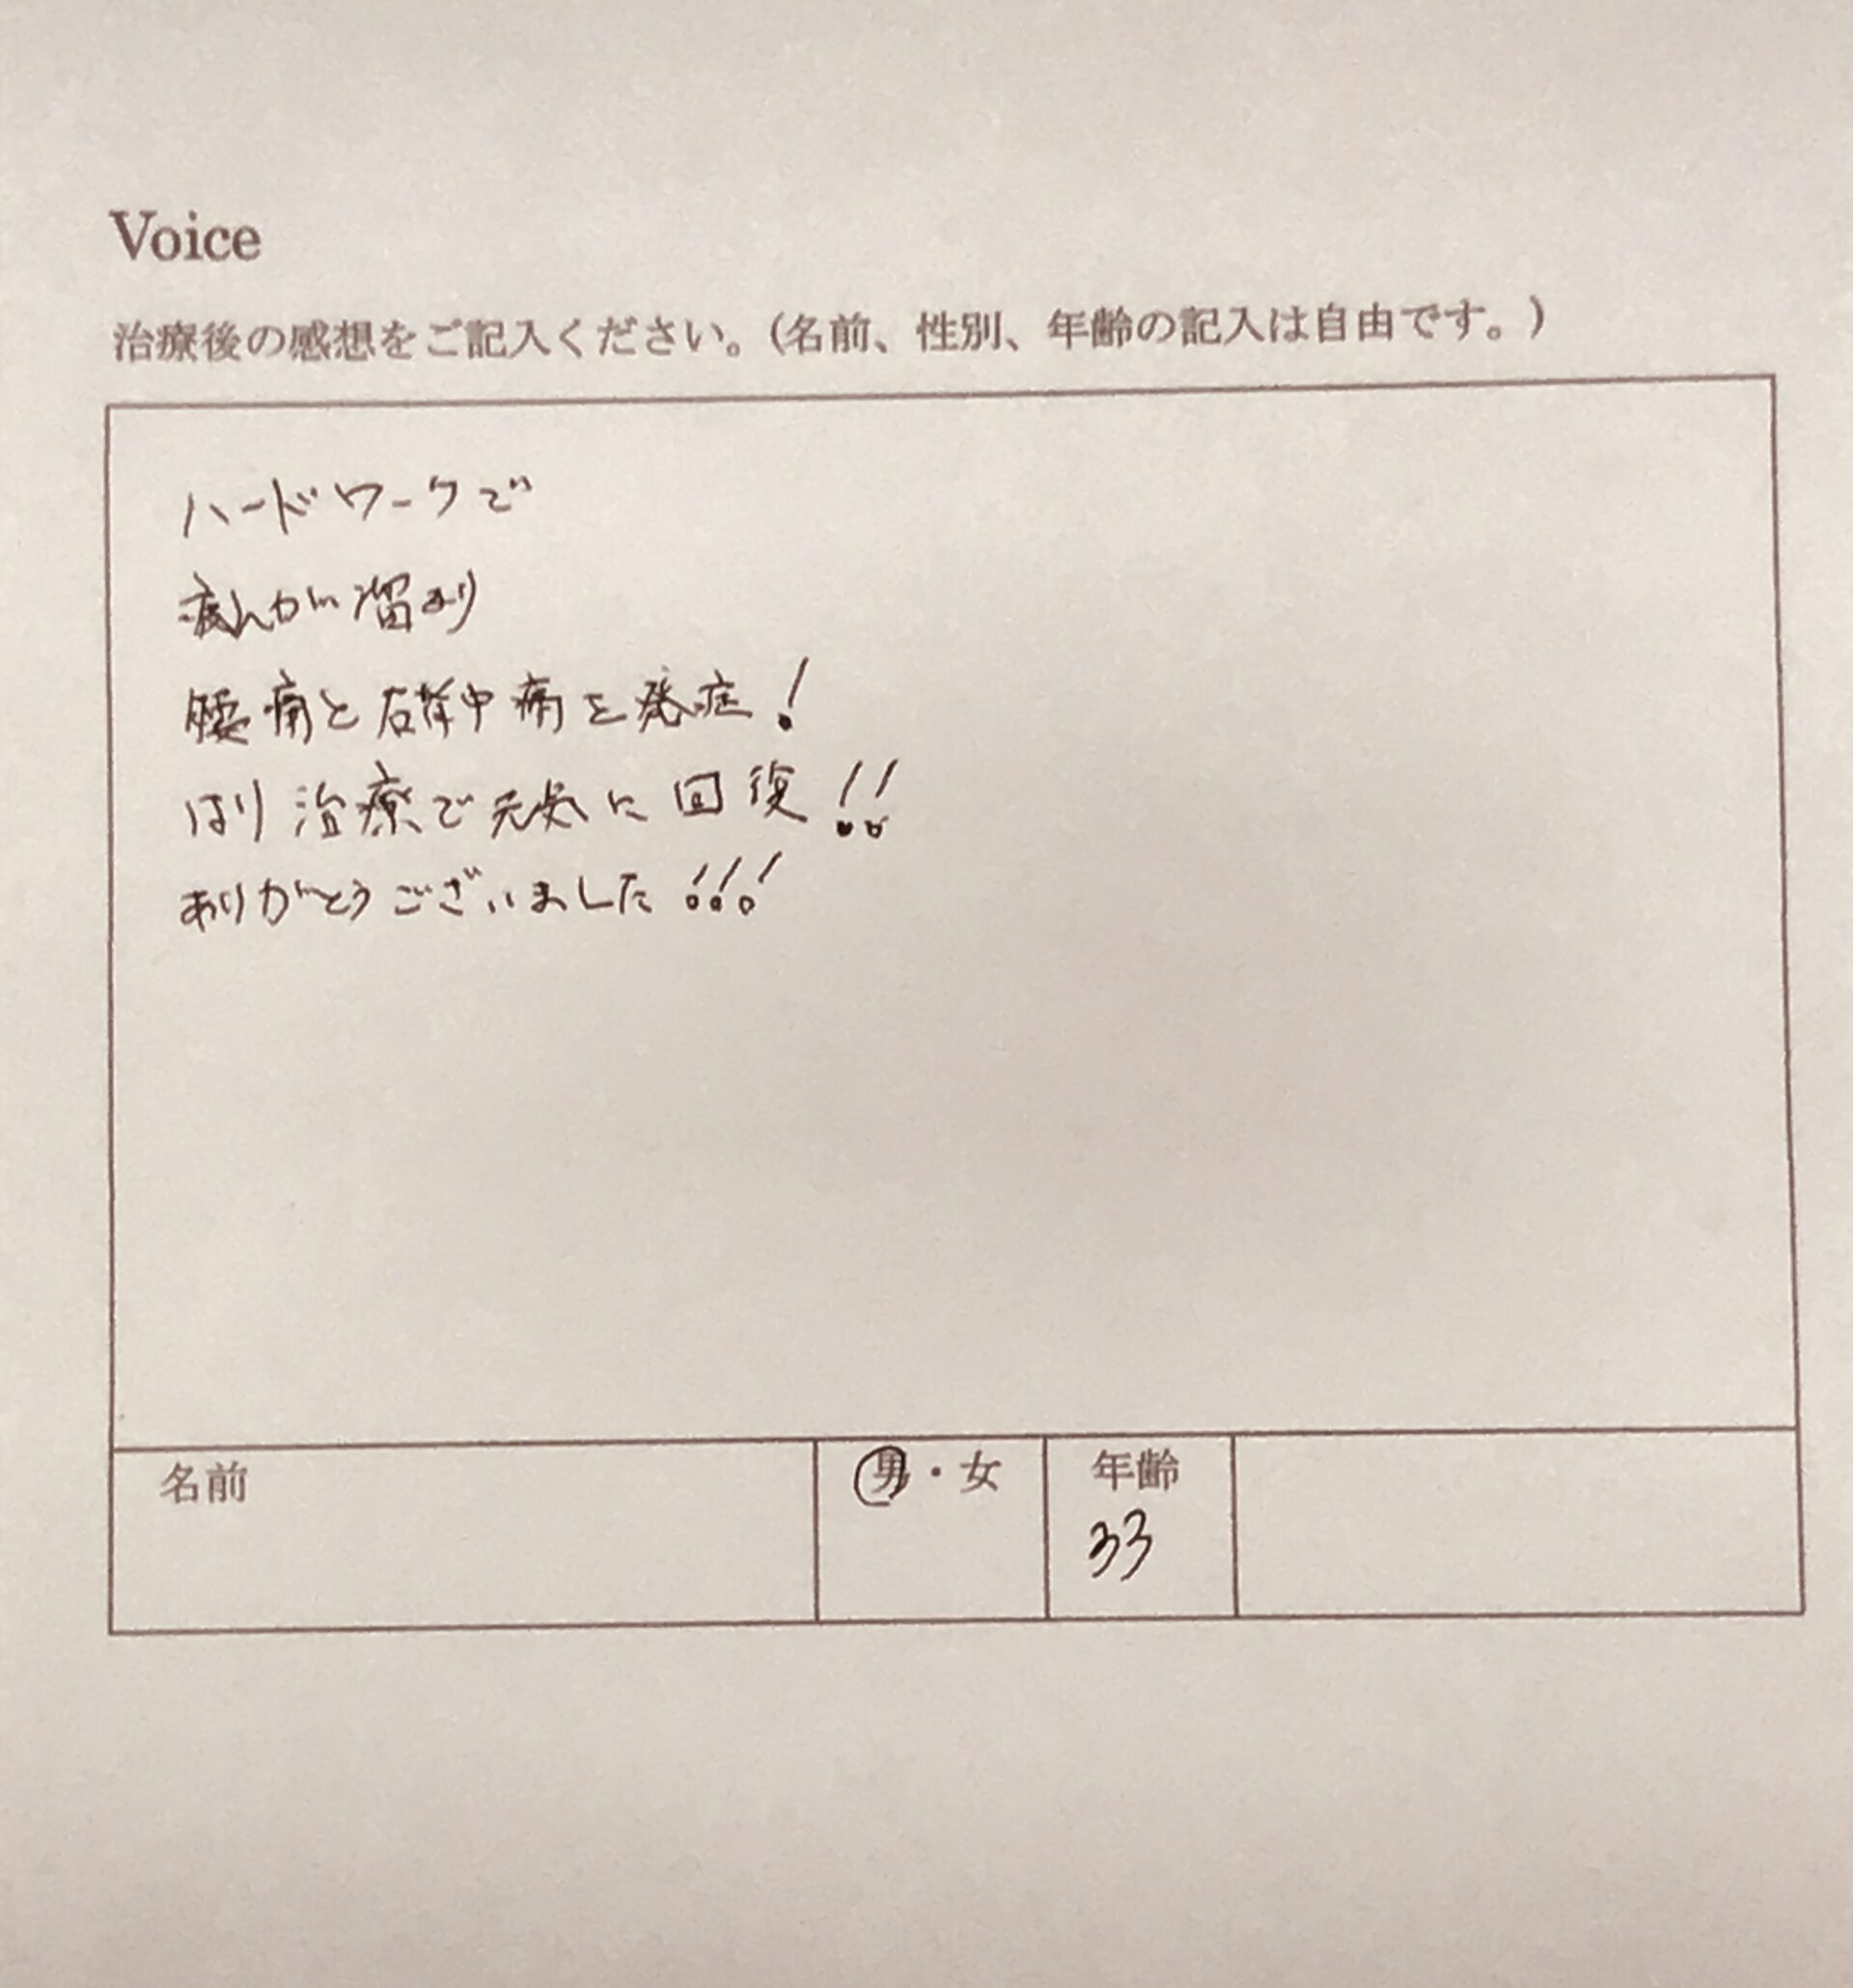 Voice
治療後の感想をご記入ください。(名前、性別、年齢の記入は自由です。)
ハードワークで
疲れが溜まり
腰痛と右背中痛を発症!
はり治療で元気に回復!!
ありがとうございました!!!
名前 男・女 年齢
33